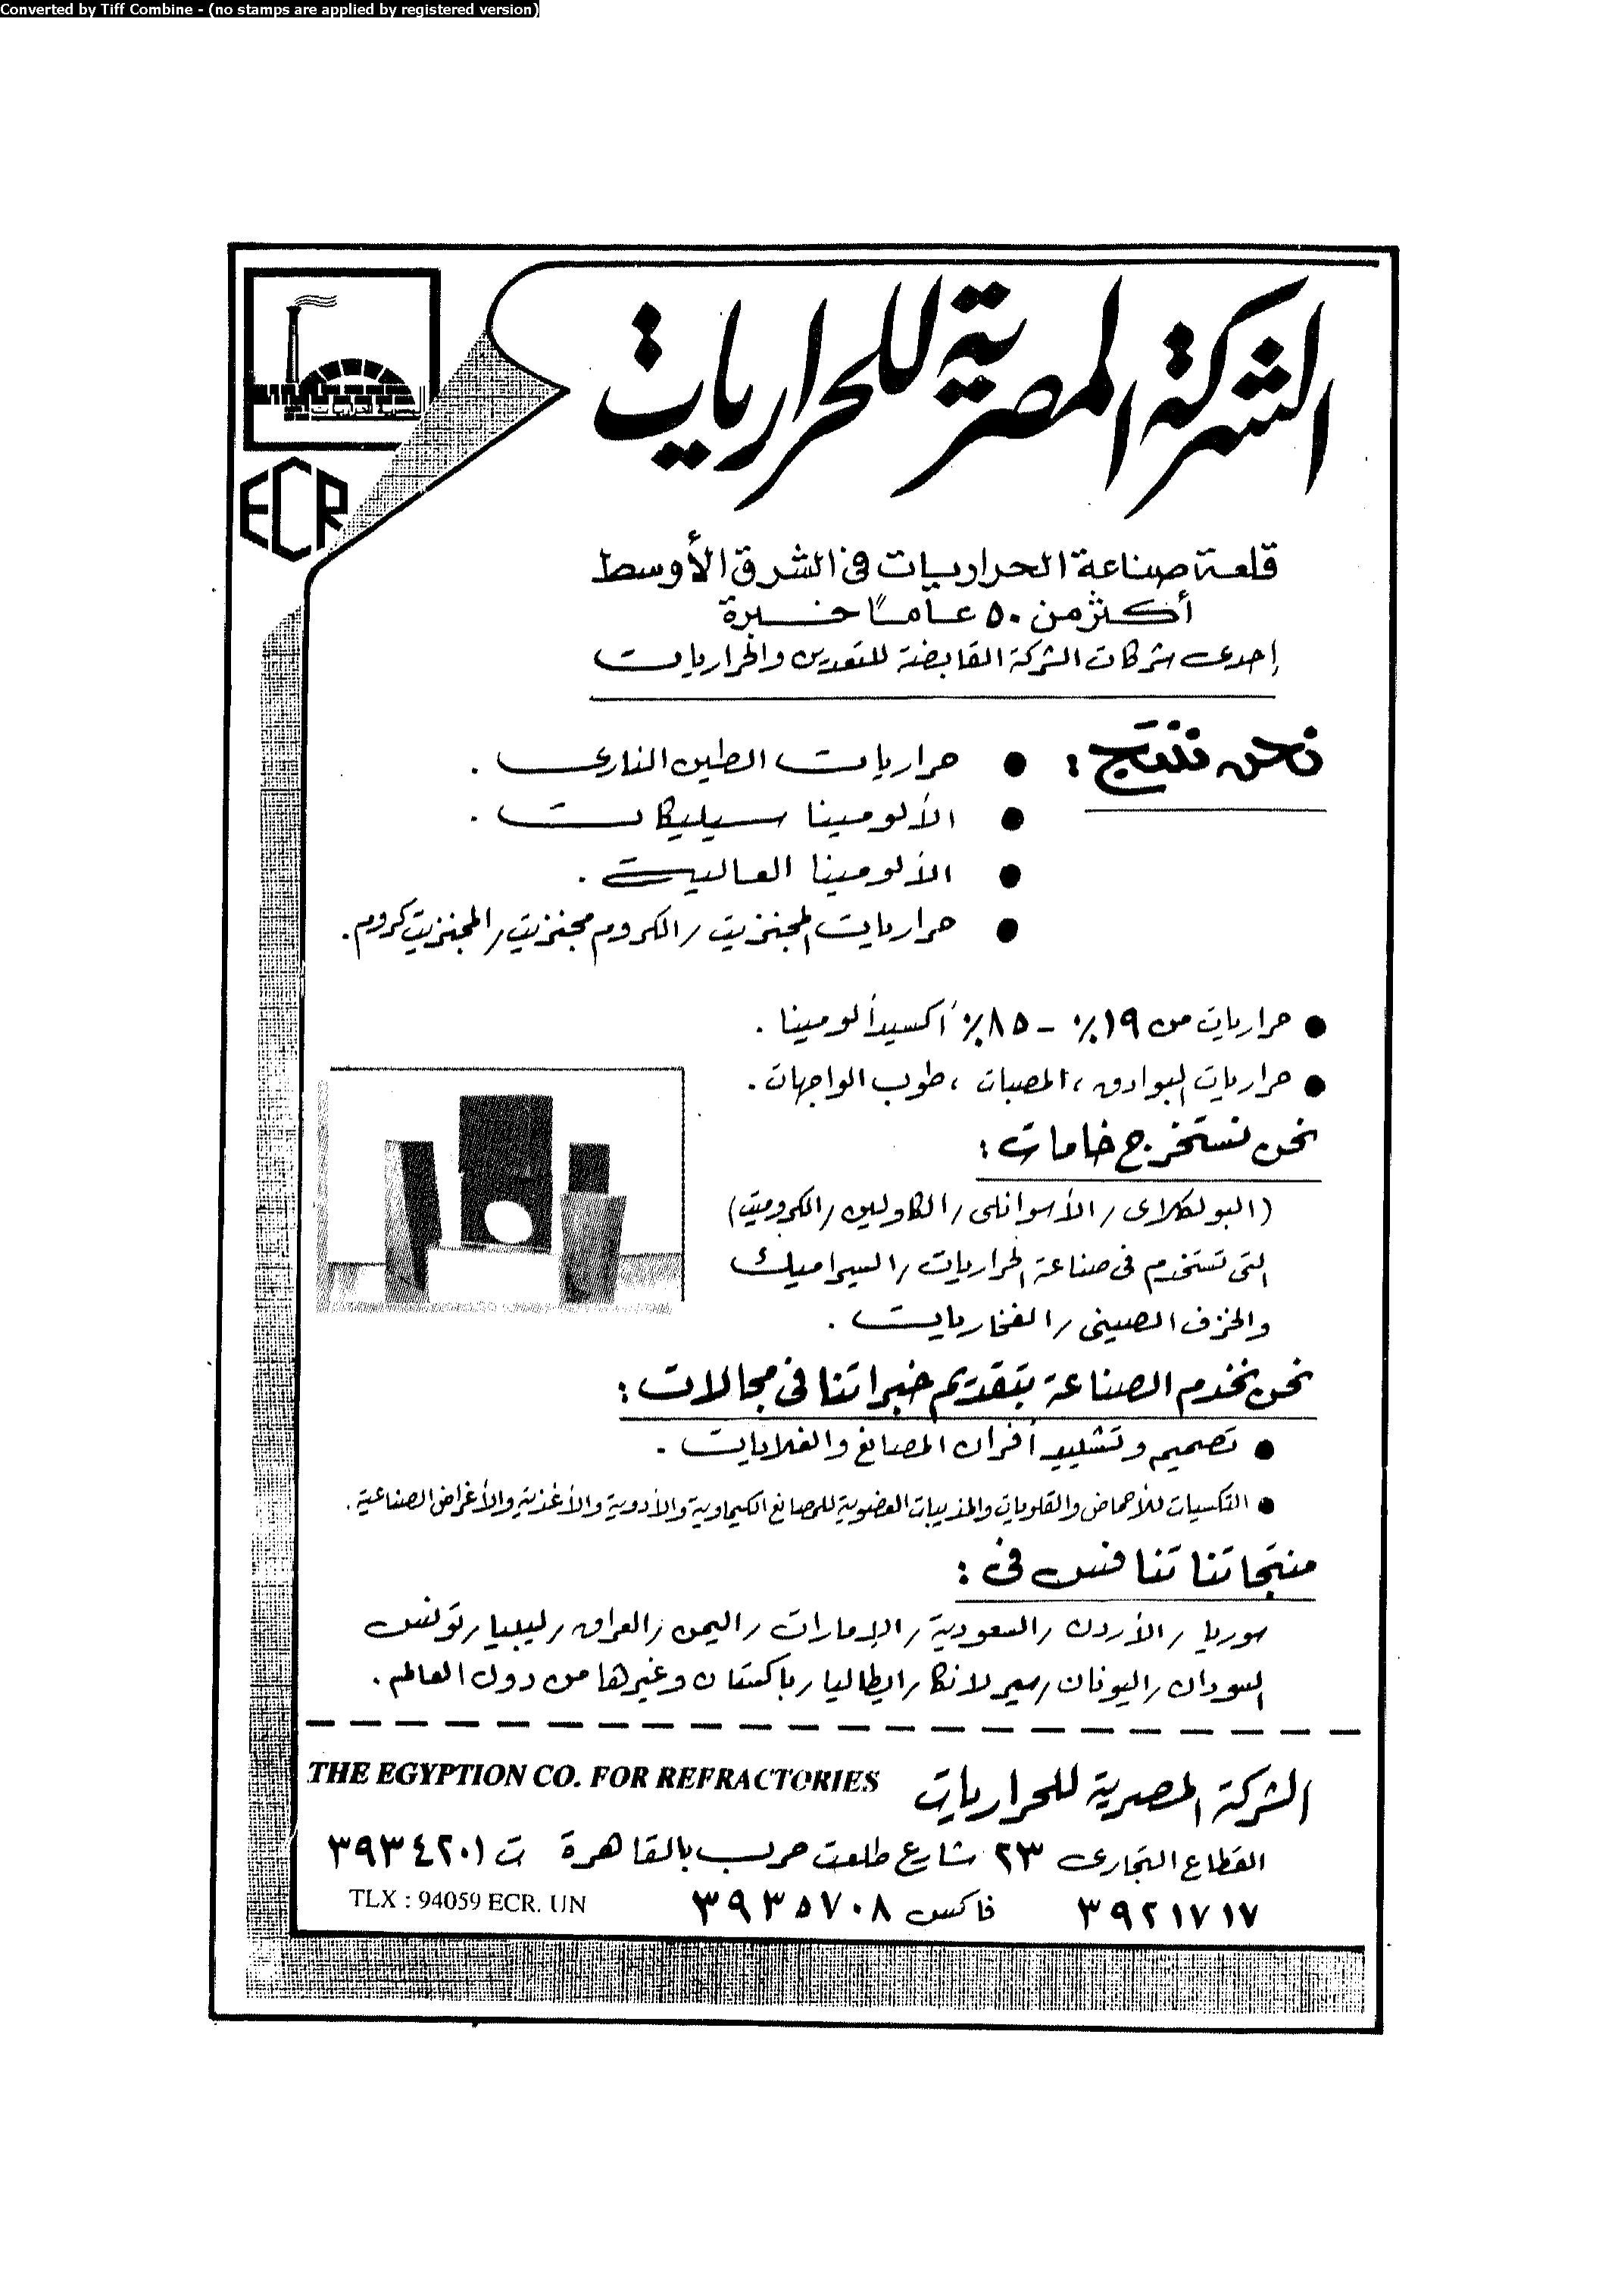 Converted by Tiff Combine - (no stamps are applied by registered version)
الشركة المصرية للحراريات
ECR
قلعة صناعة الحراريات فى الشرق الأوسط
أكثر من ٥٠ عامًا خبرة
إحدى شركات الشركة القابضة للتعدين والحراريات
نحن ننتج :
● حراريات الطين النارى .
● الألومينا سيليكات .
● الألومينا العالية .
● حراريات المجنزيت / الكروم مجنزيت / المجنزيت كروم .
● حراريات من ١٩٪ - ٨٥٪ أكسيد ألومينا .
● حراريات البوادق ، المصبات ، طوب الواجهات .
نحن نستخرج خامات :
( البولكلاى / الأسوانلى / الكاولين / الكروميت )
التى تستخدم فى صناعة الحراريات / السيراميك
والخزف الصينى / الفخاريات .
نحن نخدم الصناعة بتقديم خبراتنا فى مجالات :
● تصميم وتشييد أفران المصانع والغلايات .
● التكسيات للأحماض والقلويات والمذيبات العضوية للمصانع الكيماوية والأدوية والأغذية والأغراض الصناعية .
منتجاتنا تنافس فى :
سوريا / الأردن / السعودية / الإمارات / اليمن / العراق / ليبيا / تونس
السودان / اليونان / سيرلانكا / ايطاليا / باكستان وغيرها من دول العالم .
الشركة المصرية للحراريات THE EGYPTION CO. FOR REFRACTORIES
القطاع التجارى ٢٣ شارع طلعت حرب بالقاهرة ت ٣٩٣٤٢٠١
٣٩٢١٧١٧ فاكس ٣٩٣٥٧٠٨ TLX : 94059 ECR. UN